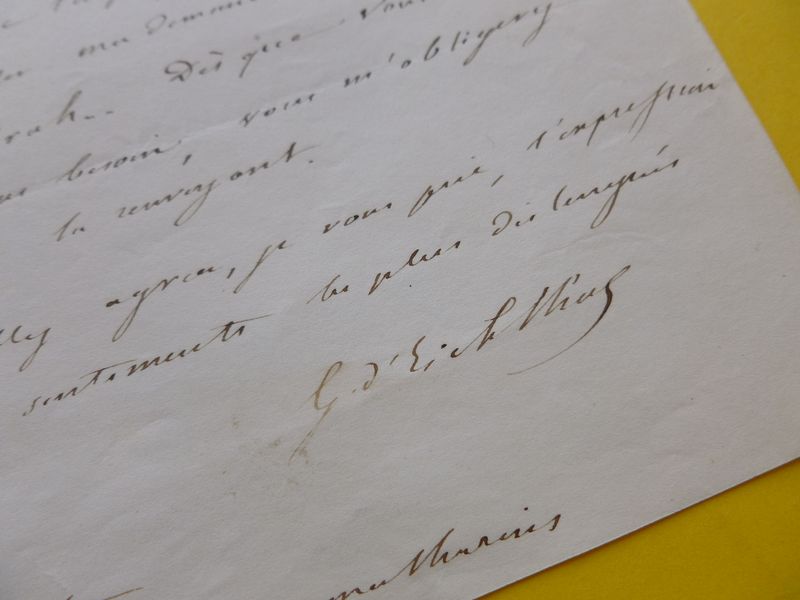 ma demande
Dès que vous
besoin, vous m'obligerez
la renvoyant.
agréer, je vous prie, l'expression
sentiments les plus distingués
G. d'Eichthal
mathurins